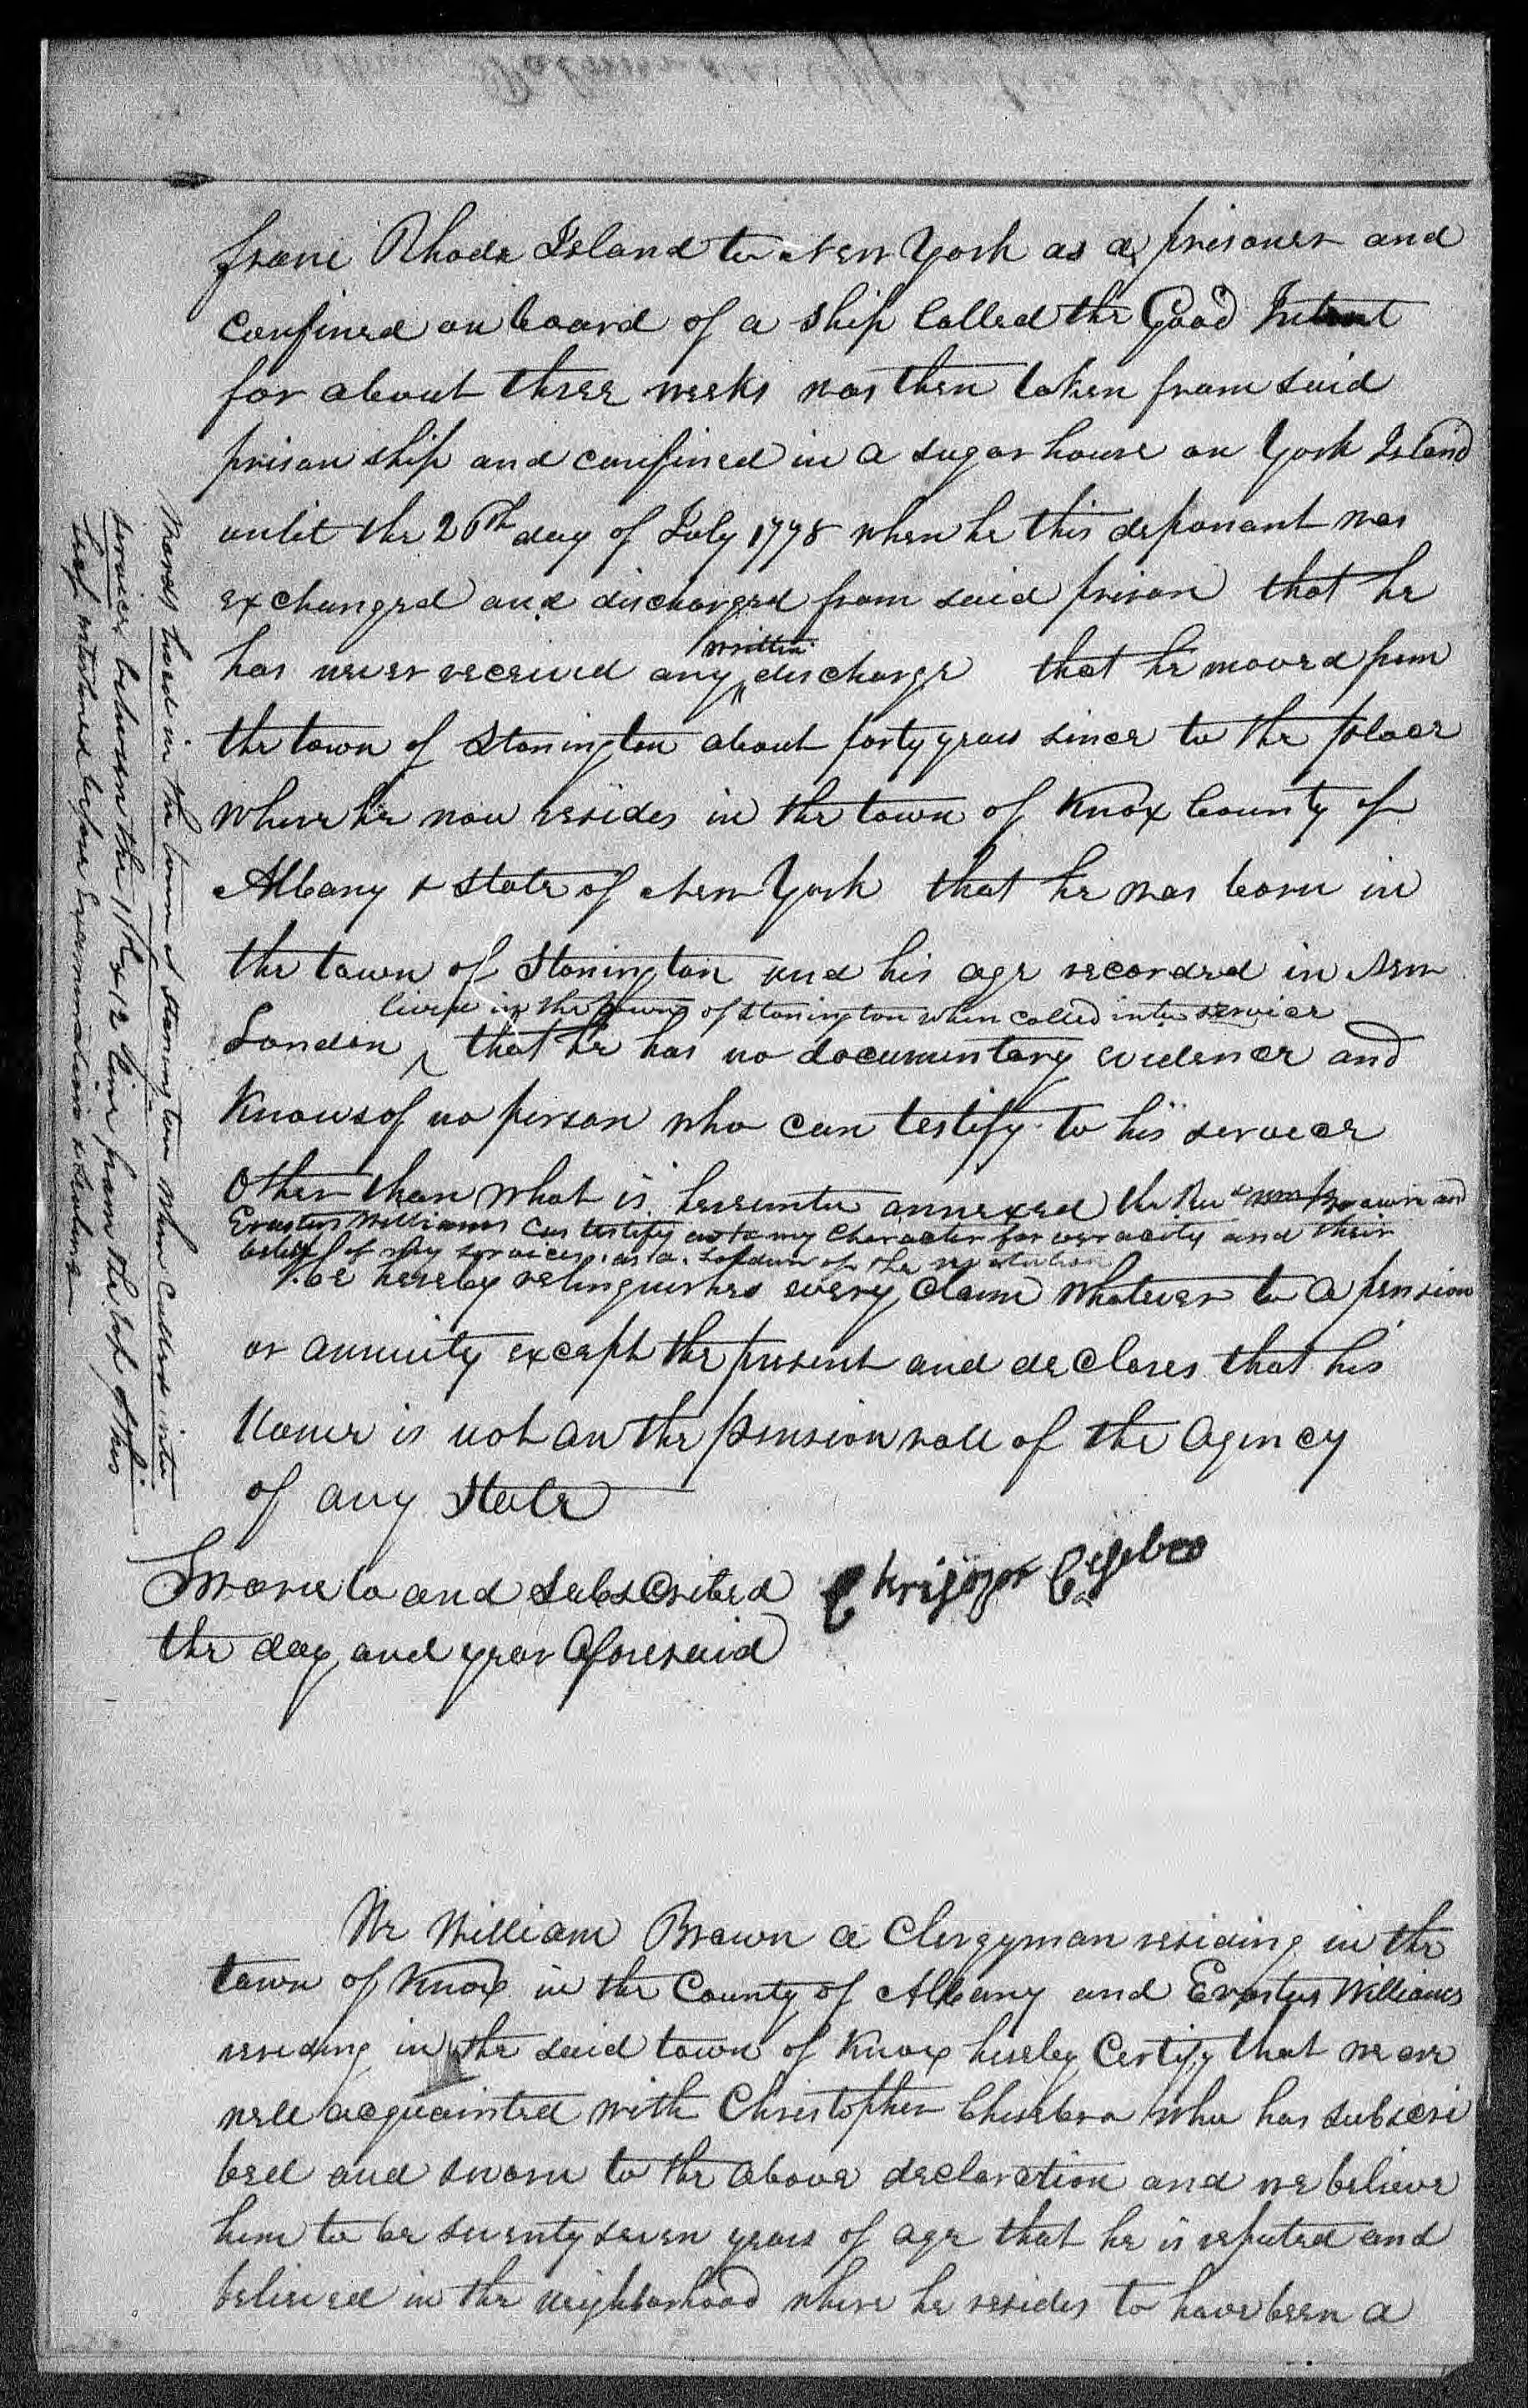 from Rhode Island to New York as a prisoner and
confined on board of a ship Called the Good Intent
for about three weeks was then taken from said
prison ship and confined in a sugar house on York Island
until the 26th day of July 1778 when he this deponant was
exchanged and discharged from said prison that he
has never received any written discharge that he moved from
the town of Stonington about forty years since to the place
where he now resides in the town of Knox County of
Albany & State of New York that he was born in
the town of Stonington and his age recorded in New
lived in the town of Stonington when called into service
London that he has no documentary evidence and
Knows of no person who can testify to his service
Other than what is hereunto annexed the Rev Wm Brown and
Erastus Williams Can testify as to my Character for veracity and their
belief of my services as a Soldier of the revolution
he hereby relinquishes every Claim whatever to a pension
or annuity except the present and declares that his
Name is not on the pension roll of the Agency
of any State
Sworn to and SubsCribed
the day and year aforesaid
Chrisjopr Cesebro
Words lived in the town of Stonington when Called into
service between the 11th & 12 line from the top of this
leaf interlined before Examination &
We William Brown a Clergyman residing in the
town of Knox in the County of Albany and Erastus Williams
residing in the said town of Knox hereby Certify that we are
well acquainted with Christopher Chesebro who has subscri
bed and sworn to the above declaration and we believe
him to be seventy seven years of age that he is reputed and
believed in the neighborhood where he resides to have been a